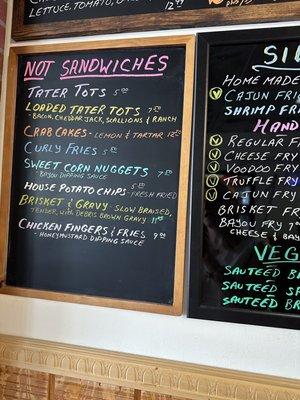 LETTUCE, TOMATO,
12
NOT SANDWICHES
TATER TOTS 5.00
LOADED TATER TOTS 7.50
- BACON, CHEDDAR JACK, SCALLIONS & RANCH
CRAB CAKES - LEMON & TARTAR 12.50
CURLY FRIES 5.00
SWEET CORN NUGGETS 7.50
- BAYOU DIPPING SAUCE
HOUSE POTATO CHIPS 5.00 - FRESH FRIED
BRISKET & GRAVY - SLOW BRAISED,
TENDER, WITH DEBRIS BROWN GRAVY 11.50
CHICKEN FINGERS & FRIES 9.00
- HONEYMUSTARD DIPPING SAUCE
HOME MADE
CAJUN FRIE
SHRIMP FR
HAND
REGULAR F
CHEESE FRY
VOODOO FRY
TRUFFLE FRY
CAJUN FRY
BRISKET FR
BAYOU FRY
CHEESE & BAY
VEG
SAUTEED B
SAUTEED S
SAUTEED BR